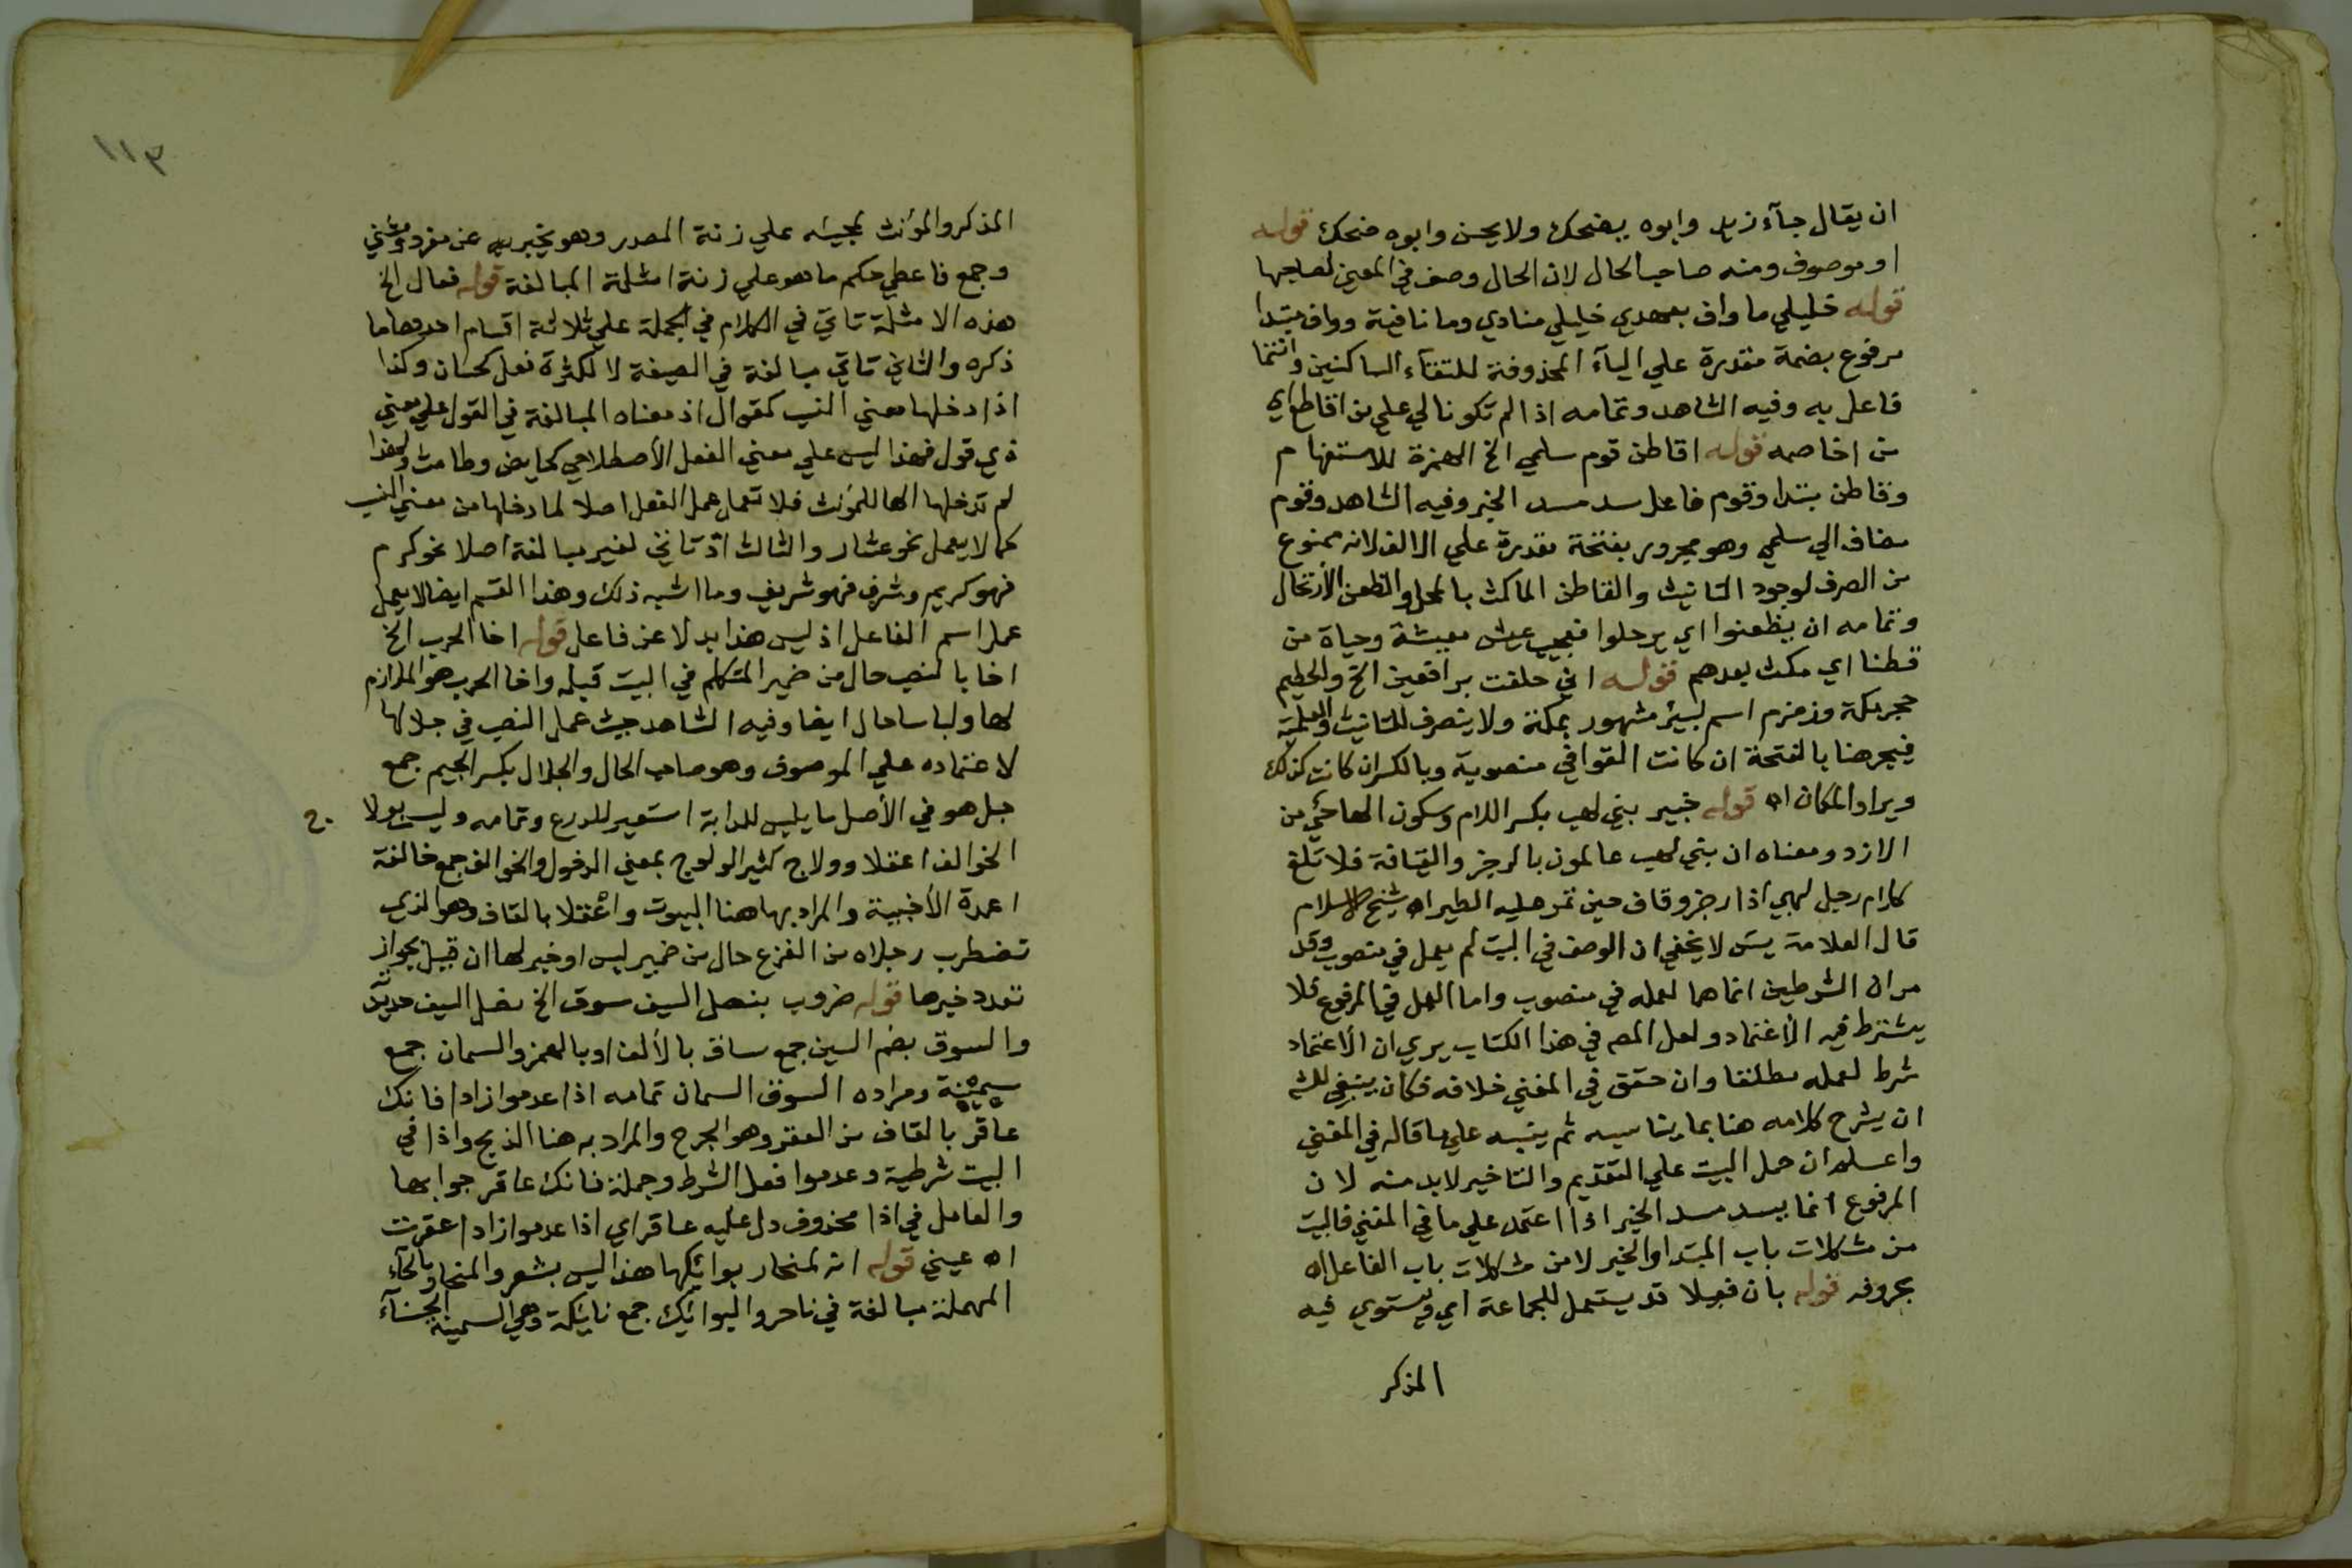 ان يقال جآء زيد وابوه يضحك ولا يحسن وابوه ضحك قوله
او موصوف ومنه صاحب الحال لان الحال وصف في المعنى لصاحبها
قوله خليلي ما واف بعهدي خليلي منادي وما نافية وواف مبتدا
مرفوع بضمة مقدرة علي اليآء المحذوفة للتقآء الساكنين وانتما
فاعل به وفيه الشاهد وتمامه اذا لم تكونا لي علي من اقاطع اي
من اخاصمه قوله اقاطن قوم سلمي الخ الهمزة للاستفهام
وقاطن مبتدا وقوم فاعل سد مسد الخبر وفيه الشاهد وقوم
مضاف الي سلمي وهو مجرور بفتحة مقدرة علي الالف لانه ممنوع
من الصرف لوجود التانيث والقاطن الماكث بالمحل والظعن الأرتحال
وتمامه ان يظعنوا اي يرحلوا فعجيب عيش معيشة وحياة من
قطنا اي مكث بعدهم قوله اني حلفت برافعين الخ والحطيم
حجر مكة وزمزم اسم لبئر مشهور بمكة ولا ينصرف للتانيث والعلمية
فيجر هنا بالفتحة ان كانت القوافي منصوبة وبالكسر ان كانت كذلك
ويراد المكان اه قوله خبير بني لهب بكسر اللام وسكون الهاء حي من
الازد ومعناه ان بني لهب عالمون بالرجز والقيافة فلا تلغ
كلام رجل لهبي اذا رجز وقاف حين تمر عليه الطير اه شيخ الاسلام
قال العلامة يس لا يخفي ان الوصف في البيت لم يعمل في منصوب وقد
مر ان الشرطين انما هما لعمله في منصوب واما العمل في المرفوع فلا
يشترط فيه الأعتماد ولعل المص في هذا الكتاب يري ان الأعتماد
شرط لعمله مطلقا وان حقق في المغني خلافه فكان ينبغي للش
ان يشرح كلامه هنا بما يناسبه ثم ينبه علي ما قاله في المغني
واعلم ان حمل البيت علي التقديم والتاخير لابد منه لان
المرفوع انما يسد مسد الخبر اذا اعتمد علي ما في المغني فالبيت
من مشكلات باب المبتدا والخبر لا من مشكلات باب الفاعل اه
بحروفه قوله بان فعيلا قد يستعمل للجماعة اي ويستوي فيه
المذكر
١١٣
المذكر والمؤنث لمجيئه علي زنة المصدر وهو يخبر به عن مفرد ومثني
وجمع فاعطي حكم ما هو علي زنة امثلة المبالغة قوله فعال الخ
هذه الامثلة تاتي في الكلام في الجملة علي ثلاثة اقسام احدها ما
ذكره والثاني تاتي مبالغة في الصيغة لا لكثرة فعل كحسان وكذا
اذا دخلها معني النسب كقوال اذ معناه المبالغة في القول علي معني
ذي قول فهذا ليس علي معني الفعل الأصطلاحي كحايض وطامث ولهذا
لم تدخلها الها للمؤنث فلا تعمل عمل الفعل اصلا لما دخلها من معني النسب
كما لا يعمل نحو عشار والثالث اذ تاني لغير مبالغة اصلا نحو كرم
فهو كريم وشرف فهو شريف وما اشبه ذلك وهذا القسم ايضا لا يعمل
عمل اسم الفاعل اذ ليس هذا بدلا عن فاعل قوله اخا الحرب الخ
اخا بالنصب حال من ضمير المتكلم في البيت قبله واخا الحرب هو الملازم
لها ولباسا حال ايضا وفيه الشاهد حيث عمل النصب في جلالها
لاعتماده علي الموصوف وهو صاحب الحال والجلال بكسر الجيم جمع
جل هو في الأصل ما يلبس للدابة استعير للدرع وتمامه وليس بولا
ج
الخوالف اعقلا وولاج كثير الولوج بمعني الدخول والخوالف جمع خالفة
اعمدة الأخبية والمراد بها هنا البيوت واعقلا بالقاف وهو الذي
تضطرب رجلاه من الفزع حال من ضمير ليس او خبر لها ان قيل بجواز
تعدد خبرها قوله ضروب بنصل السيف سوق الخ نصل السيف حديدته
والسوق بضم السين جمع ساق بالألف او بالهمز والسمان جمع
سمينة ومراده السوق السمان تمامه اذا عدموا زادا فانك
عاقر بالقاف من العقر وهو الجرح والمراد به هنا الذبح واذا في
البيت شرطية وعدموا فعل الشرط وجملة فانك عاقر جوابها
والعامل في اذا محذوف دل عليه عاقر اي اذا عدموا زادا عقرت
اه عيني قوله انه لمنحار بوائكها هذا ليس بشعر والمنحار بالحآء
المهملة مبالغة في ناحر والبوائك جمع بائكة وهي السمينة الحسنآء